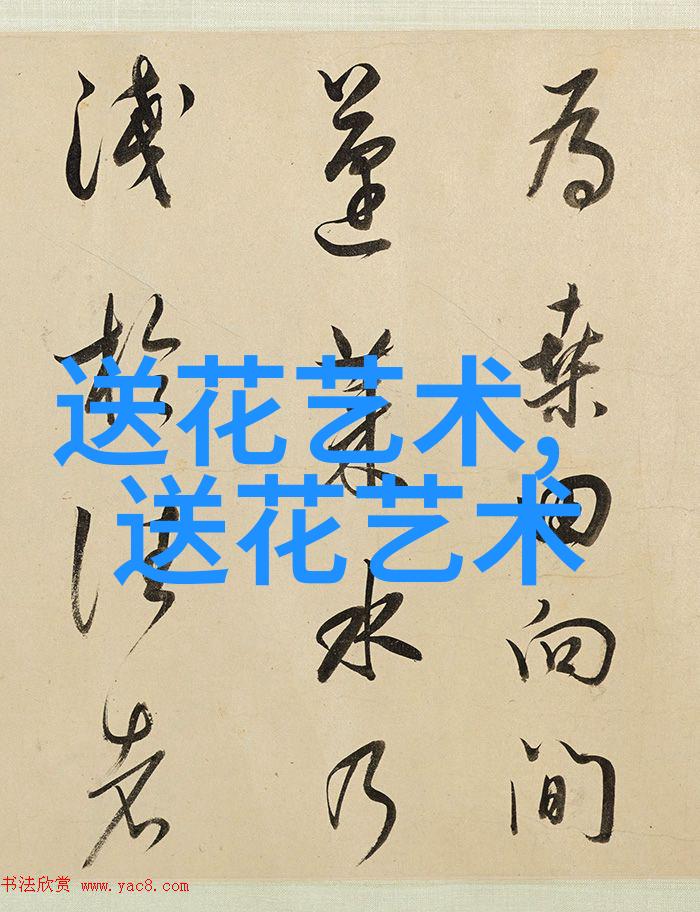 為桑田向間
蓬萊水乃
淺於往者
送花艺术,
送花艺术
书法欣赏 www.yac8.com